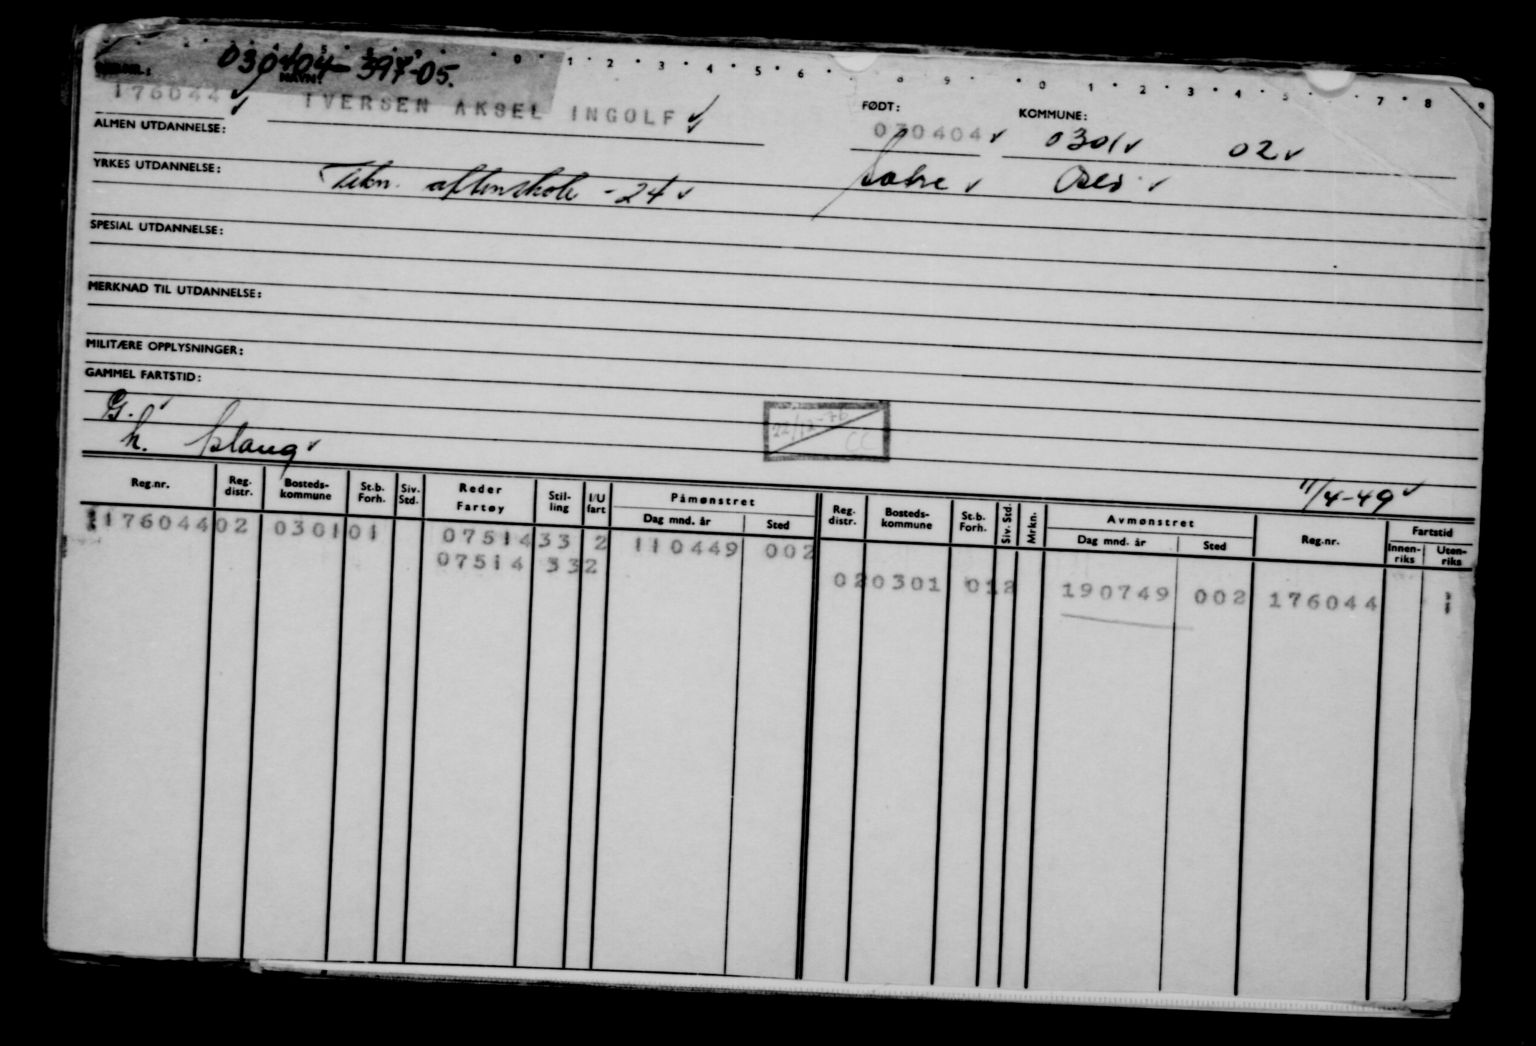 030404-397-05.
NAVN:
176044 IVERSEN AKSEL INGOLF
FØDT: KOMMUNE:
030404 0301 02
ALMEN UTDANNELSE:
YRKES UTDANNELSE: Tekn. aftenskole - 24 Oslo
SPESIAL UTDANNELSE:
MERKNAD TIL UTDANNELSE:
MILITÆRE OPPLYSNINGER:
GAMMEL FARTSTID:
G.
h.
22/12-76 CC
11/4-49
Reg.nr. Reg. distr. Bosteds-kommune St.b. Forh. Siv. Std. Reder Fartøy Stil-ling I/U fart Påmønstret Dag mnd. år Sted Reg. distr. Bosteds-kommune St.b. Forh. Siv. Std. Mrkn. Avmønstret Dag mnd. år Sted Reg.nr. Fartstid Innen-riks Uten-riks
176044 02 0301 01 07514 33 2 110449 002
07514 33 2 02 0301 01 2 190749 002 176044